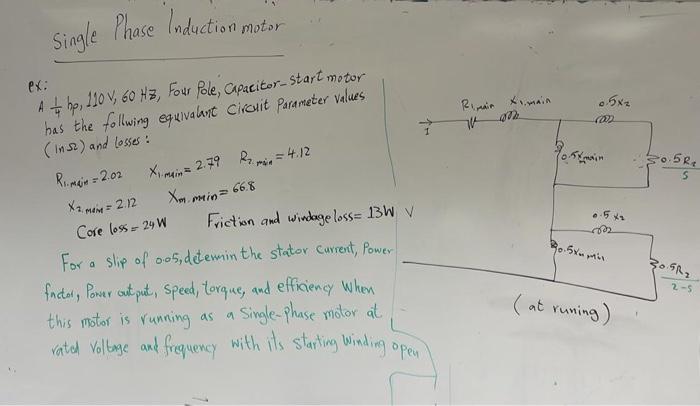 Single Phase Induction motor
ex:
A 1/4 hp, 110 V, 60 Hz, Four Pole, Capacitor-start motor
has the follwing equivalant Circuit Parameter values
(in Ω) and losses:
R1.main = 2.02 X1.main = 2.79 R2.main = 4.12
X2.main = 2.12 Xm.main = 66.8
Core loss = 24 W Friction and windage loss = 13W V
For a slip of 0.05, detemin the stator Current, Power
factor, Power output, Speed, torque, and efficiency When
this motor is running as a Single-Phase motor at
rated Voltage and frequency with its starting Winding open
R1.main X1.main 0.5X2
I
0.5Xmain 0.5R2/S
0.5 X2
0.5Xm main 0.5R2/2-S
(at runing)